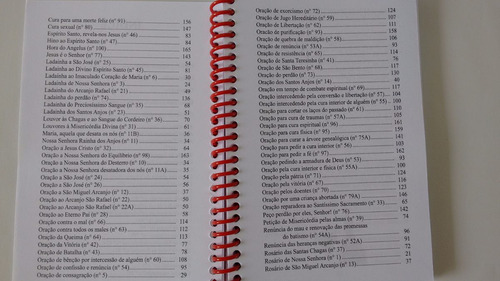 Cura para uma morte feliz (nº 91) 156
Cura sexual (nº 80) 147
Espírito Santo, revela-nos Jesus (nº 46) 85
Hino ao Espírito Santo (nº 47) 84
Hora do Angelus (nº 100) 165
Jesus é o Senhor (nº 77) 143
Ladainha a São José (nº 23) 54
Ladainha ao Divino Espírito Santo (nº 45) 81
Ladainha ao Imaculado Coração de Maria (nº 6) 30
Ladainha de Nossa Senhora (nº 3) 24
Ladainha do Arcanjo Rafael (nº 21) 49
Ladainha do perdão (nº 74) 136
Ladainha do Preciosíssimo Sangue (nº 35) 68
Ladainha dos Santos Anjos (nº 23) 51
Louvor às Chagas e ao Sangue do Cordeiro (nº 36)
Louvores à Misericórdia Divina (nº 31) 61
Maria, aquela que desata os nós (nº 11B) 36
Nossa Senhora Rainha dos Anjos (nº 11) 34
Oração a Jesus Cristo (nº 32) 64
Oração a Nossa Senhora do Equilíbrio (nº 98) 163
Oração a Nossa Senhora do Desterro (nº 10) 34
Oração a Nossa Senhora desatadora dos nós (nº 11A) 35
Oração a São José (nº 24) 54
Oração a São José (nº 26) 56
Oração a São Miguel Arcanjo (nº 12) 37
Oração ao Arcanjo São Rafael (nº 22) 50
Oração ao Arcanjo São Rafael (nº 22A) 50
Oração ao Eterno Pai (nº 28) 58
Oração contra o mal (nº 66) 114
Oração contra todos os males (nº 63) 112
Oração da Quaresma (nº 64) 113
Oração da Vitória (nº 42) 77
Oração de Batalha (nº 43) 78
Oração de bênção por intercessão de alguém (nº 60) 108
Oração de confissão e renúncia (nº 54) 95
Oração de consagração (nº 5) 29
Oração de exorcismo (nº 72) 124
Oração de Jugo Hereditário (nº 59) 107
Oração de Libertação (nº 62) 111
Oração de purificação (nº 93) 158
Oração de quebra de maldição (nº 58) 106
Oração de renúncia (nº 53A) 93
Oração de resistência (nº 65) 114
Oração de Santa Teresinha (nº 41) 76
Oração de São Bento (nº 68) 117
Oração do perdão (nº 73) 130
Oração dos Santos Anjos (nº 14) 40
Oração em tempo de combate espiritual (nº 69) 117
Oração intercedendo pela conversão e libertação (nº 57) 104
Oração intercedendo pela cura interior de alguém (nº 55) 100
Oração para cortar os laços do passado (nº 61) 110
Oração para cura de traumas (nº 37A) 105
Oração para cura espiritual (nº 96) 161
Oração para cura física (nº 95) 159
Oração para curar a árvore genealógica (nº 75A) 141
Oração para pedir a cura interior (nº 56) 103
Oração para pedir a fé (nº 97) 162
Oração pedindo a armadura de Deus (nº 53) 93
Oração pela cura interior e física (nº 55A) 100
Oração pela pátria (nº 71) 124
Oração pela vitória (nº 67) 116
Oração pelos doentes (nº 70) 123
Oração por uma criança abortada (nº 79A) 146
Oração reparadora ao Santíssimo Sacramento (nº 33) 65
Peço perdão por eles, Senhor! (nº 76) 142
Petição de Misericórdia pelas almas (nº 59) 74
Renúncia do mau e renovação das promessas
do batismo (nº 54A) 96
Renúncia das heranças negativas (nº 52A) 91
Rosário das Santas Chagas (nº 37) 72
Rosário de Nossa Senhora (nº 1) 21
Rosário de São Miguel Arcanjo (nº 13) 37